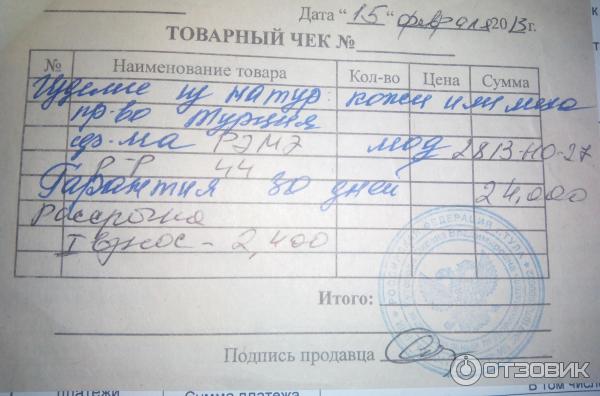 Дата “15” февраля 2013г.
ТОВАРНЫЙ ЧЕК №
№ Наименование товара Кол-во Цена Сумма
Изделие из натур кожи или меха
пр-во Турция
ф-ма РЭМЭ мод 2813-НО-27
Р-Р 44
Гарантия 30 дней 24,000
Рассрочка
I взнос - 2,400
Итого:
Подпись продавца
РОССИЙСКАЯ ФЕДЕРАЦИЯ Г. ТУЛА
ОТЗОВИК
платежи Сумма платежа В том числе